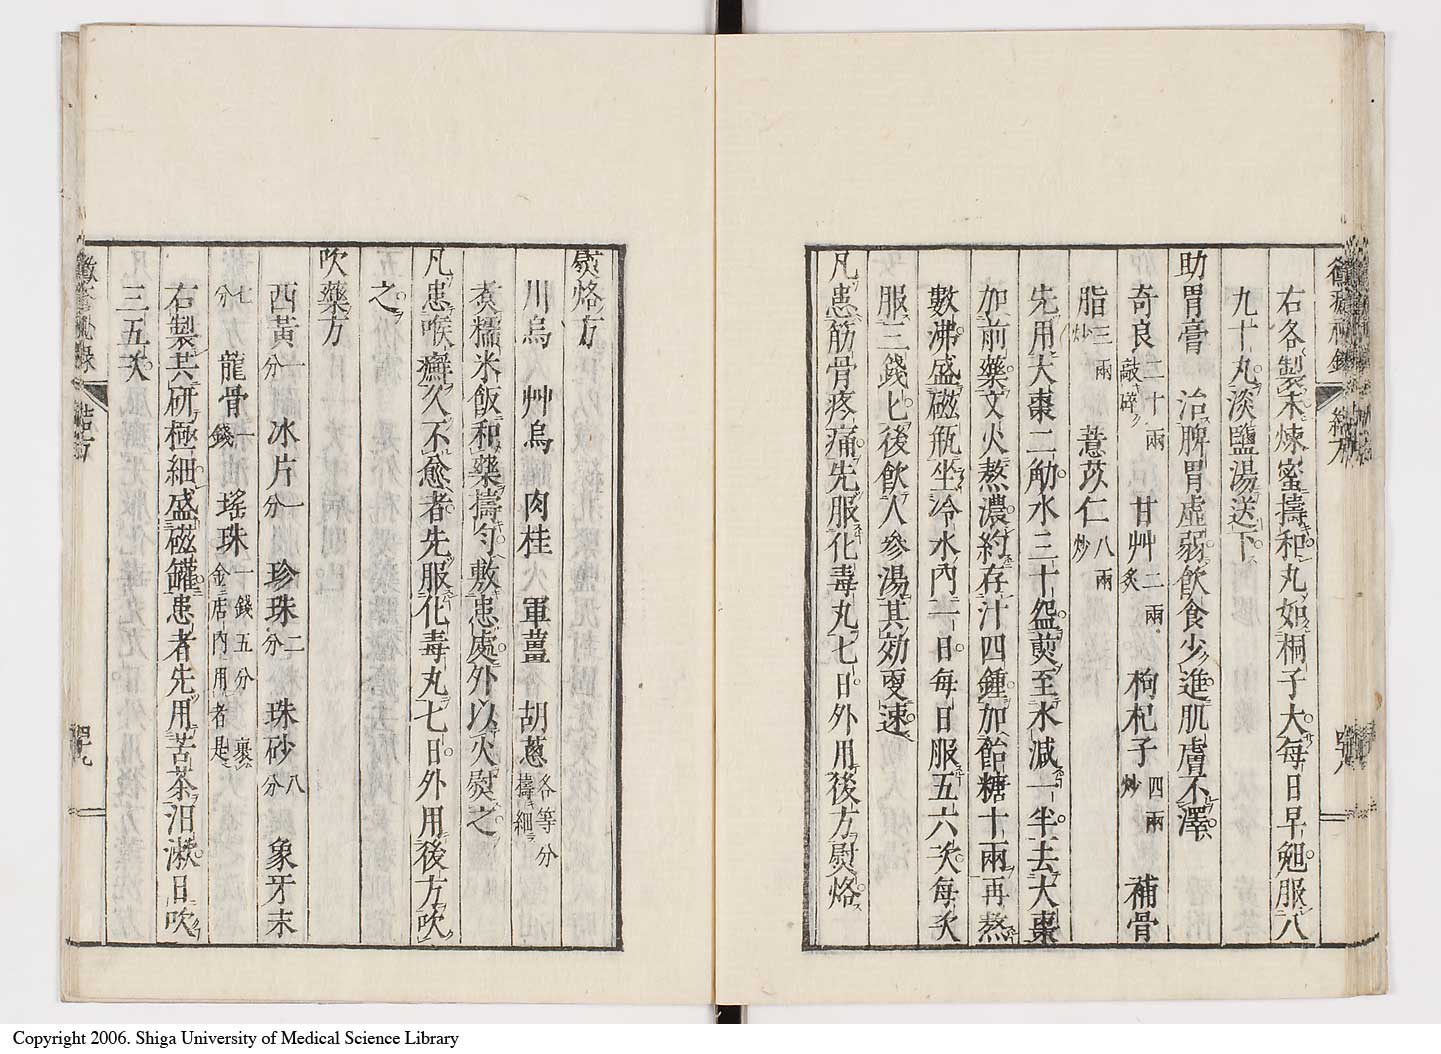 右各製末煉蜜擣和丸如桐子大每日早䑕服八
九十丸淡鹽湯送下
助胃膏　治脾胃虛弱飲食少進肌膚不澤
奇良二十兩敲碎　甘艸二兩炙　枸杞子四兩炒　補骨
脂三兩炒　薏苡仁八兩炒
先用大棗二觔水三十盌煎至水減一半去大棗
加前藥文火熬濃約存汁四鍾加飴糖十兩再熬
數沸盛磁瓶坐冷水內一日每日服五六次每次
服三錢匕後飲人參湯其効更速
凡患筋骨疼痛先服化毒丸七日外用後方熨烙
熨烙方
川烏　艸烏　肉桂　軍薑　胡蔥各等分擣細
煮糯米飯和藥擣勻敷患處外以火熨之
凡患喉癬久不愈者先服化毒丸七日外用後方吹
之
吹藥方
西黃一分　冰片一分　珍珠二分　珠砂八分　象牙末
七分　龍骨一錢　瑤珠一錢五分裹金店內用者是
右製共研極細盛磁罐患者先用苦茶汨漱日吹
三五次
結方
Copyright 2006. Shiga University of Medical Science Library